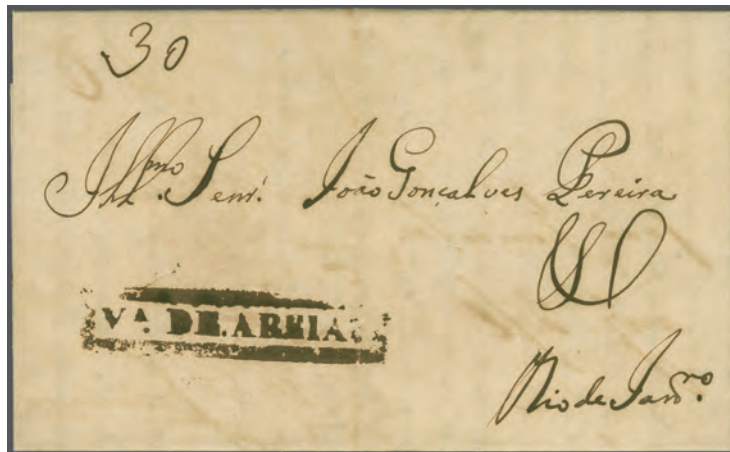 30
Illmo. Senr. João Gonçalves Pereira
VA. DE.AREIAS
Rio de Janro.